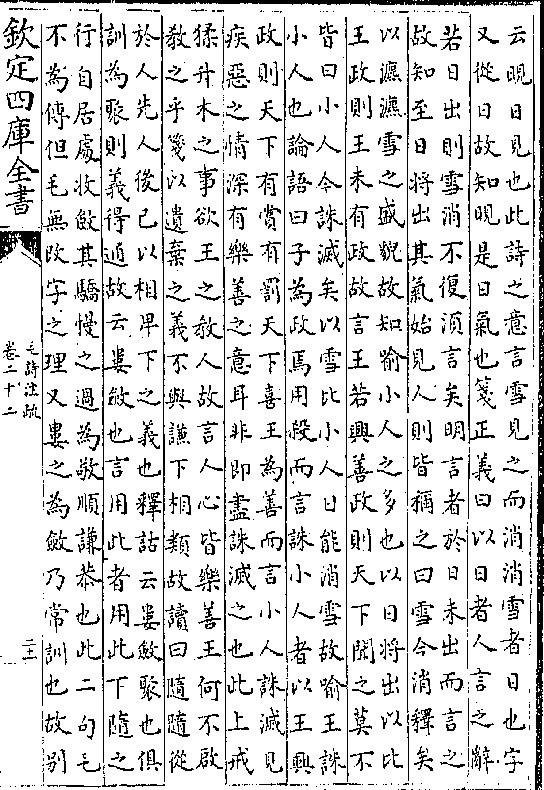 云晛日見也此詩之意言雪見之而消消雪者日也字
又從日故知晛是日氣也箋正義曰以日者人言之辭
若日出則雪消不復須言矣明言者於日未出而言之
故知至日將出其氣始見人則皆稱之曰雪今消釋矣
以瀌瀌雪之盛貌故知喻小人之多也以日將出以比
王政則王未有政故言王若興善政則天下聞之莫不
皆曰小人今誅滅矣以雪比小人日能消雪故喻王誅
小人也論語曰子為政焉用殺而言誅小人者以王興
政則天下有賞有罰天下喜王為善而言小人誅滅見
疾惡之情深有樂善之意耳非即盡誅滅之也此上戒
猱升木之事欲王之教人故言人心皆樂善王何不啟
教之乎箋以遺棄之義不與謙下相類故讀曰隨隨從
於人先人後己以相卑下之義也釋詁云婁斂聚也俱
訓為聚則義得通故云婁斂也言用此者用此下隨之
行自居處收斂其驕慢之過為敬順謙恭也此二句毛
不為傳但毛無改字之理又婁之為斂乃常訓也故別
欽定四庫全書
毛詩注疏
卷二十二
二十二